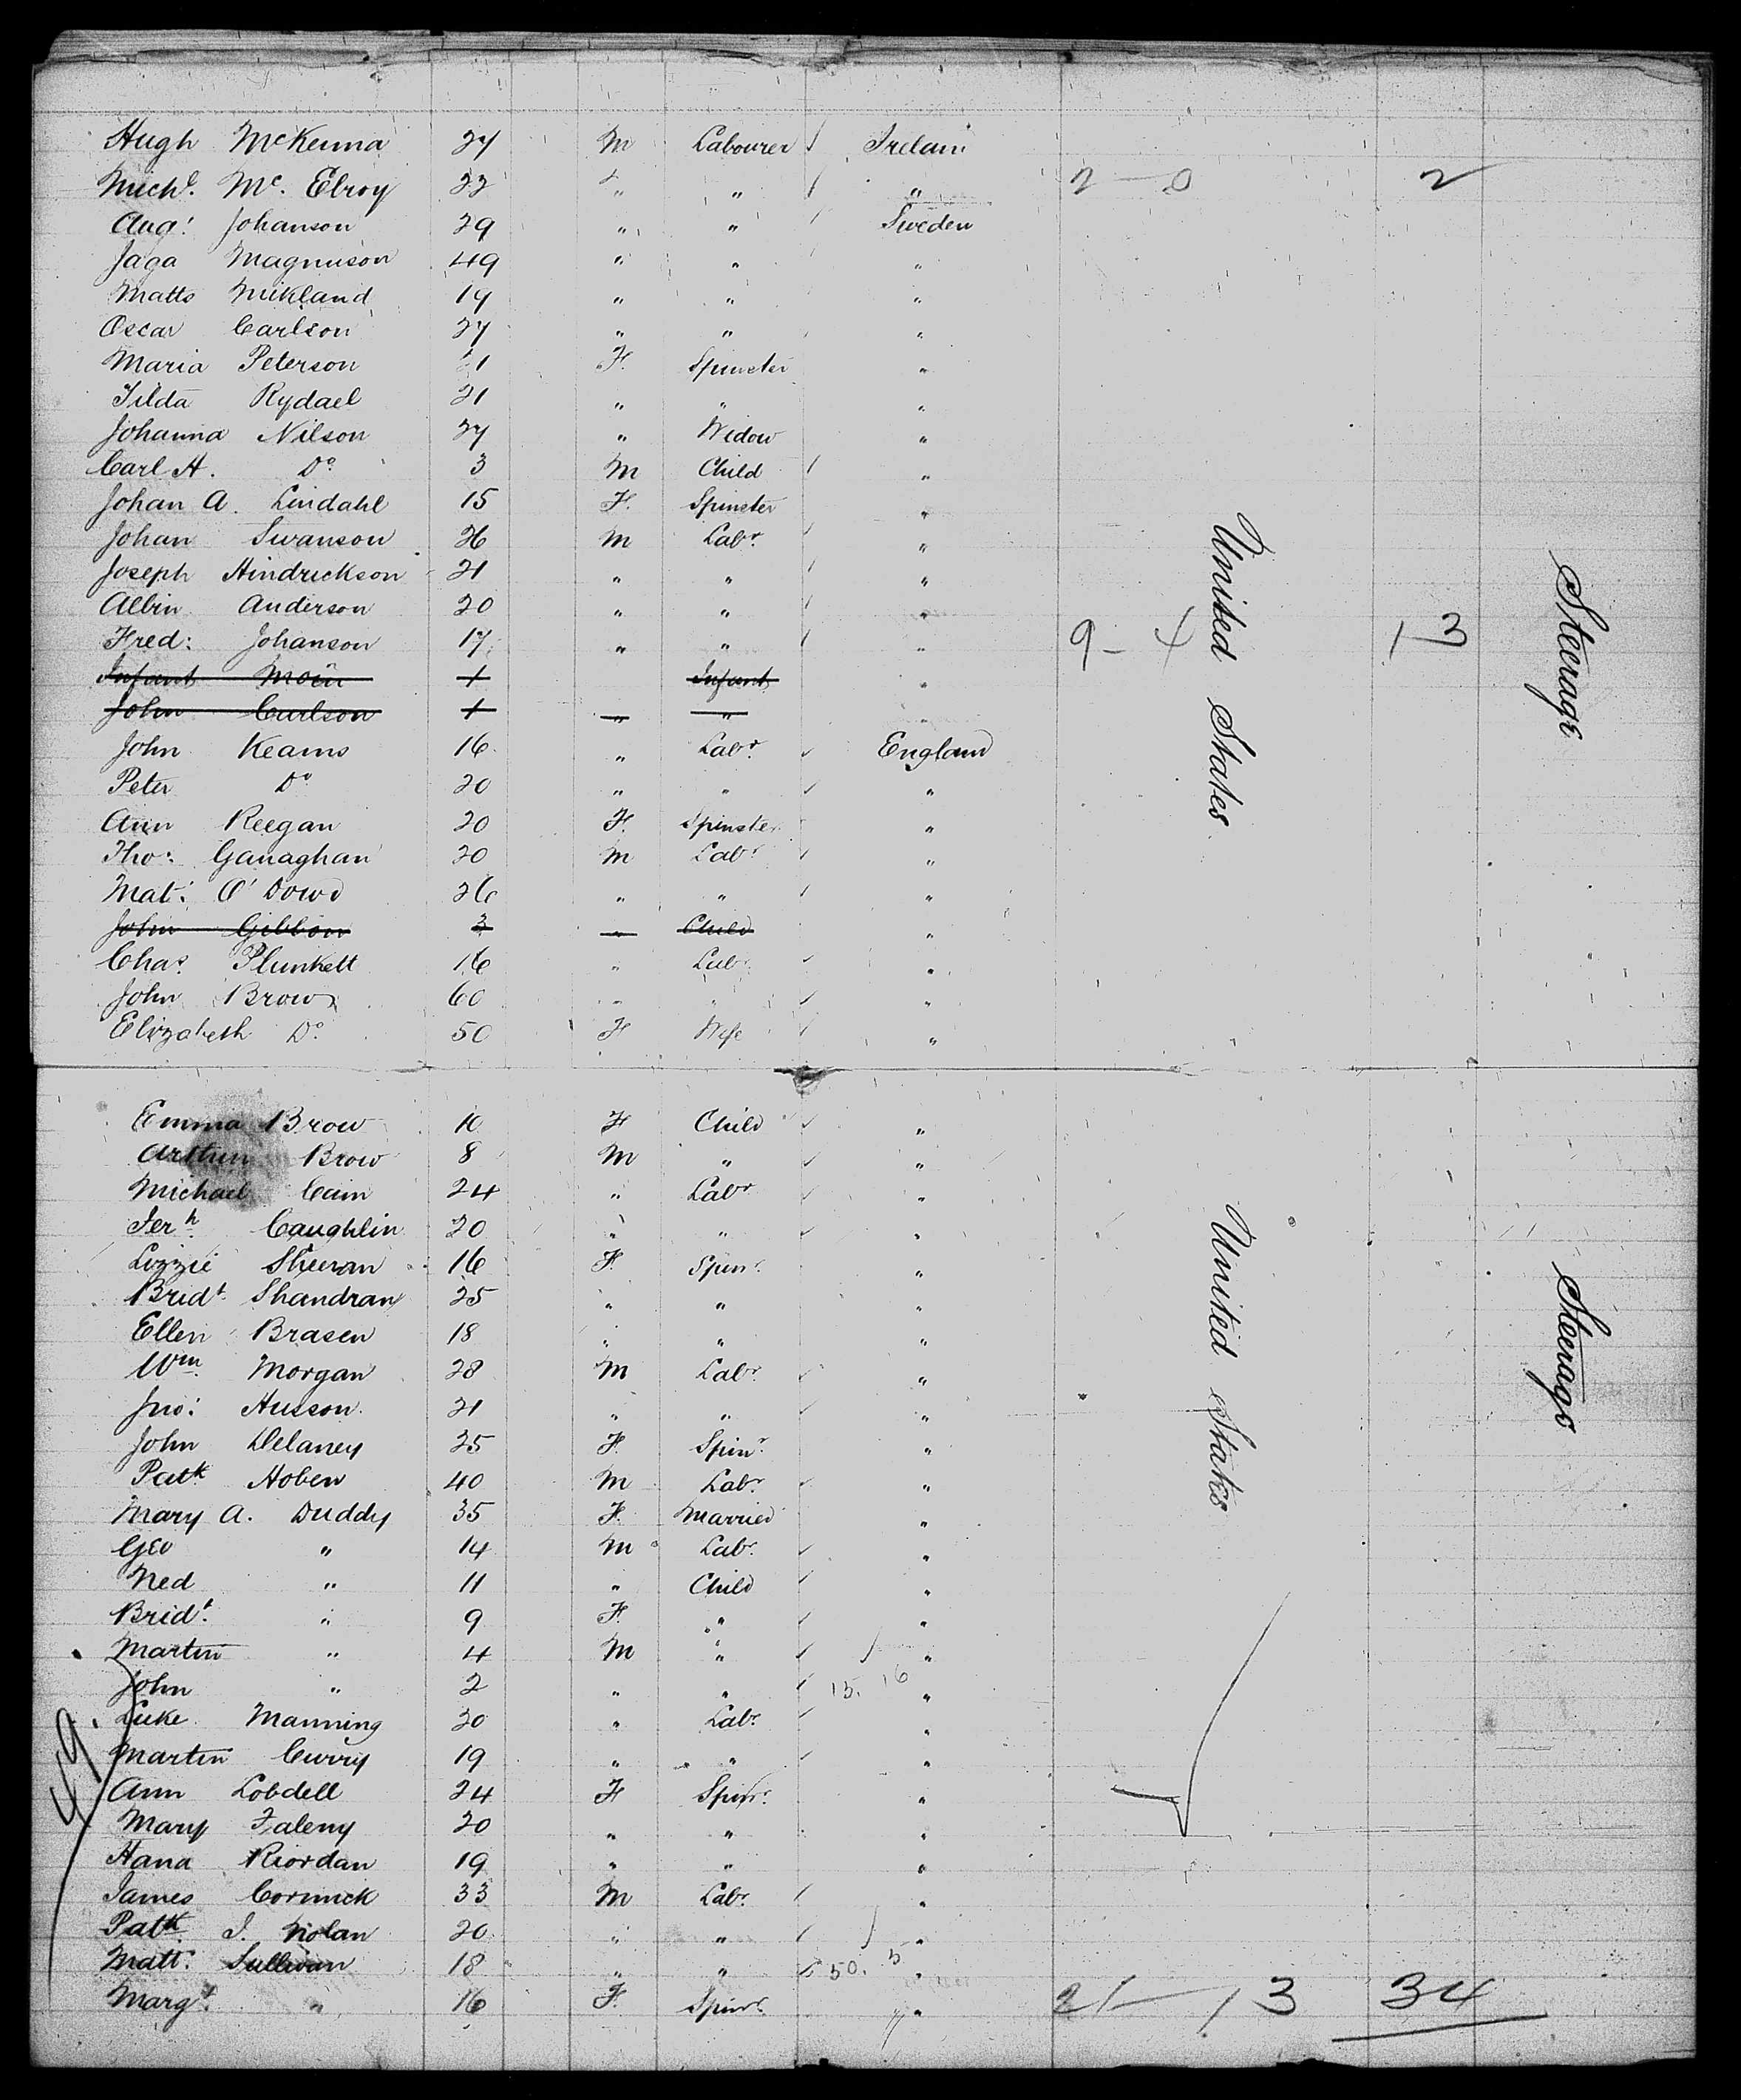 Hugh McKenna 27 M Labourer Ireland
Michl. Mc. Elroy 22 " " " 2 — 0 2
Aug: Johanson 29 " " Sweden
Jaga Magnuson 49 " " "
Matts Mikland 19 " " "
Oscar Carlson 27 " " "
Maria Peterson 21 F. Spinster "
Tilda Rydael 21 " " "
Johanna Nilson 27 " Widow "
Carl A. Do. 3 M Child "
Johan A. Lindahl 15 F. Spinster "
Johan Swanson 26 M Labr. "
Joseph Hindrickson 21 " " "
Albin Anderson 20 " " "
Fred: Johanson 17 " " " 9 – 4 13
Infant Moin 1 Infant "
John Carlson 1 " " "
John Keams 16 " Labr. England
Peter Do 20 " " "
Ann Reegan 20 F. Spinster "
Tho: Ganaghan 20 M Labr. "
Mat: O'Dowd 26 " " "
John Gibbon 3 " Child "
Chas. Plunkett 16 " Labr. "
John Brow 60 " " "
Elizabeth Do. 50 F Wife "
United States
Steerage
Emma Brow 10 F Child "
Arthur Brow 8 M " "
Michael Cain 24 " Labr "
Jerh. Caughlin 20 " " "
Lizzie Sheeran 16 F. Spinr. "
Bridt. Shandran 25 " " "
Ellen Brasen 18 " " "
Wm. Morgan 28 M Labr. "
Jno: Husson 21 " " "
John Delaney 25 F. Spinr. "
Patk Hoben 40 M Labr. "
Mary A. Duddy 35 F. Married "
Geo " 14 M Labr. "
Ned " 11 " Child "
Bridt. " 9 F. " "
Martin " 4 M " "
John " 2 " " 15. 16 "
Luke Manning 30 " Labr. "
Martin Curry 19 " " "
Ann Lobdell 24 F Spinr. "
Mary Faleny 20 " " "
Hana Riordan 19 " " "
James Cormick 33 M Labr. "
Patk. J. Nolan 20 " " "
Matt: Sullivan 18 " " 50. 5 "
Margt. " 16 F. Spinr. " 21 — 13 34
United States
Steerage
49.